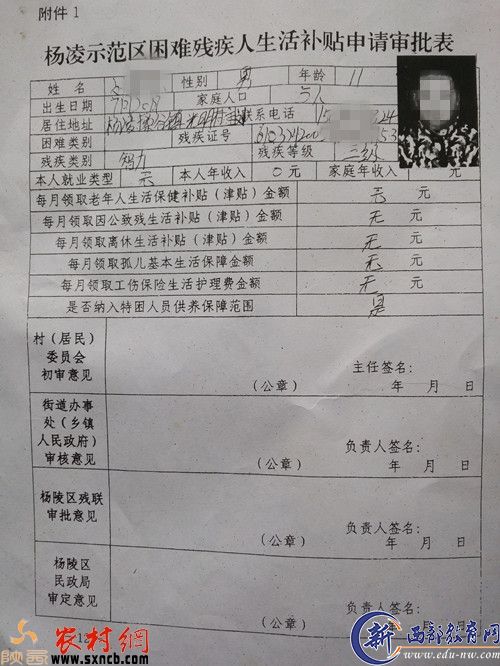 附件1
杨凌示范区困难残疾人生活补贴申请审批表
姓名 性别 男 年龄 11
出生日期 家庭人口
居住地址 联系电话
困难类别 残疾证号
残疾类别 智力 残疾等级 三级
本人就业类型 无 本人年收入 0元 家庭年收入 元
每月领取老年人生活保健补贴（津贴）金额 无 元
每月领取因公致残生活补贴（津贴）金额 无 元
每月领取离休生活补贴（津贴）金额 无 元
每月领取孤儿基本生活保障金额 无 元
每月领取工伤保险生活护理费金额 无 元
是否纳入特困人员供养保障范围
村（居民）
委员会
初审意见
主任签名：
（公章） 年 月 日
街道办事
处（乡镇
人民政府）
审核意见
负责人签名：
（公章） 年 月 日
杨陵区残联
审批意见
负责人签名：
（公章） 年 月 日
杨陵区
民政局
审定意见
负责人签名：
（公章） 年 月 日
陕西
农村網
www.sxncb.com
新西部教育网
www.edu-nw.com